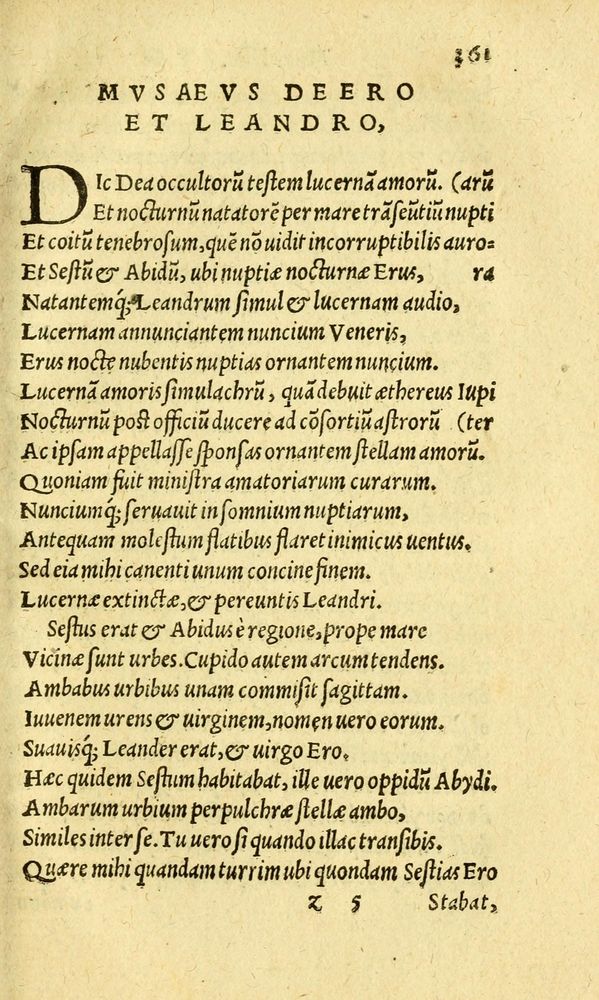 361
MVSAEVS DEERO
ET LEANDRO,
DIc Dea occultorũ testem lucernã amorũ. (arũ
Et nocturnũ natatorẽ per mare trãseũtiũ nupti
Et coitũ tenebrosum, quẽ nõ uidit incorruptibilis auro=
Et Sestũ & Abidũ, ubi nuptiæ nocturnæ Erus, ra
Natantemq́; Leandrum simul & lucernam audio,
Lucernam annunciantem nuncium Veneris,
Erus nocte nubentis nuptias ornantem nuncium.
Lucernã amoris simulachrũ, quã debuit æthereus Iupi
Nocturnũ post officiũ ducere ad cõsortiũ astrorũ (ter
Ac ipsam appellasse sponsas ornantem stellam amorũ.
Quoniam fuit ministra amatoriarum curarum.
Nunciumq́; seruauit insomnium nuptiarum,
Antequam molestum flatibus flaret inimicus uentus.
Sed eia mihi canenti unum concine finem.
Lucernæ extinctæ, & pereuntis Leandri.
Sestus erat & Abidus è regione, prope mare
Vicinæ sunt urbes. Cupido autem arcum tendens.
Ambabus urbibus unam commisit sagittam.
Iuuenem urens & uirginem, nomen uero eorum.
Suauisq́; Leander erat, & uirgo Ero.
Hæc quidem Sestum habitabat, ille uero oppidũ Abydi.
Ambarum urbium perpulchræ stellæ ambo,
Similes inter se. Tu uero si quando illac transibis.
Quære mihi quandam turrim ubi quondam Sestias Ero
z 5 Stabat,